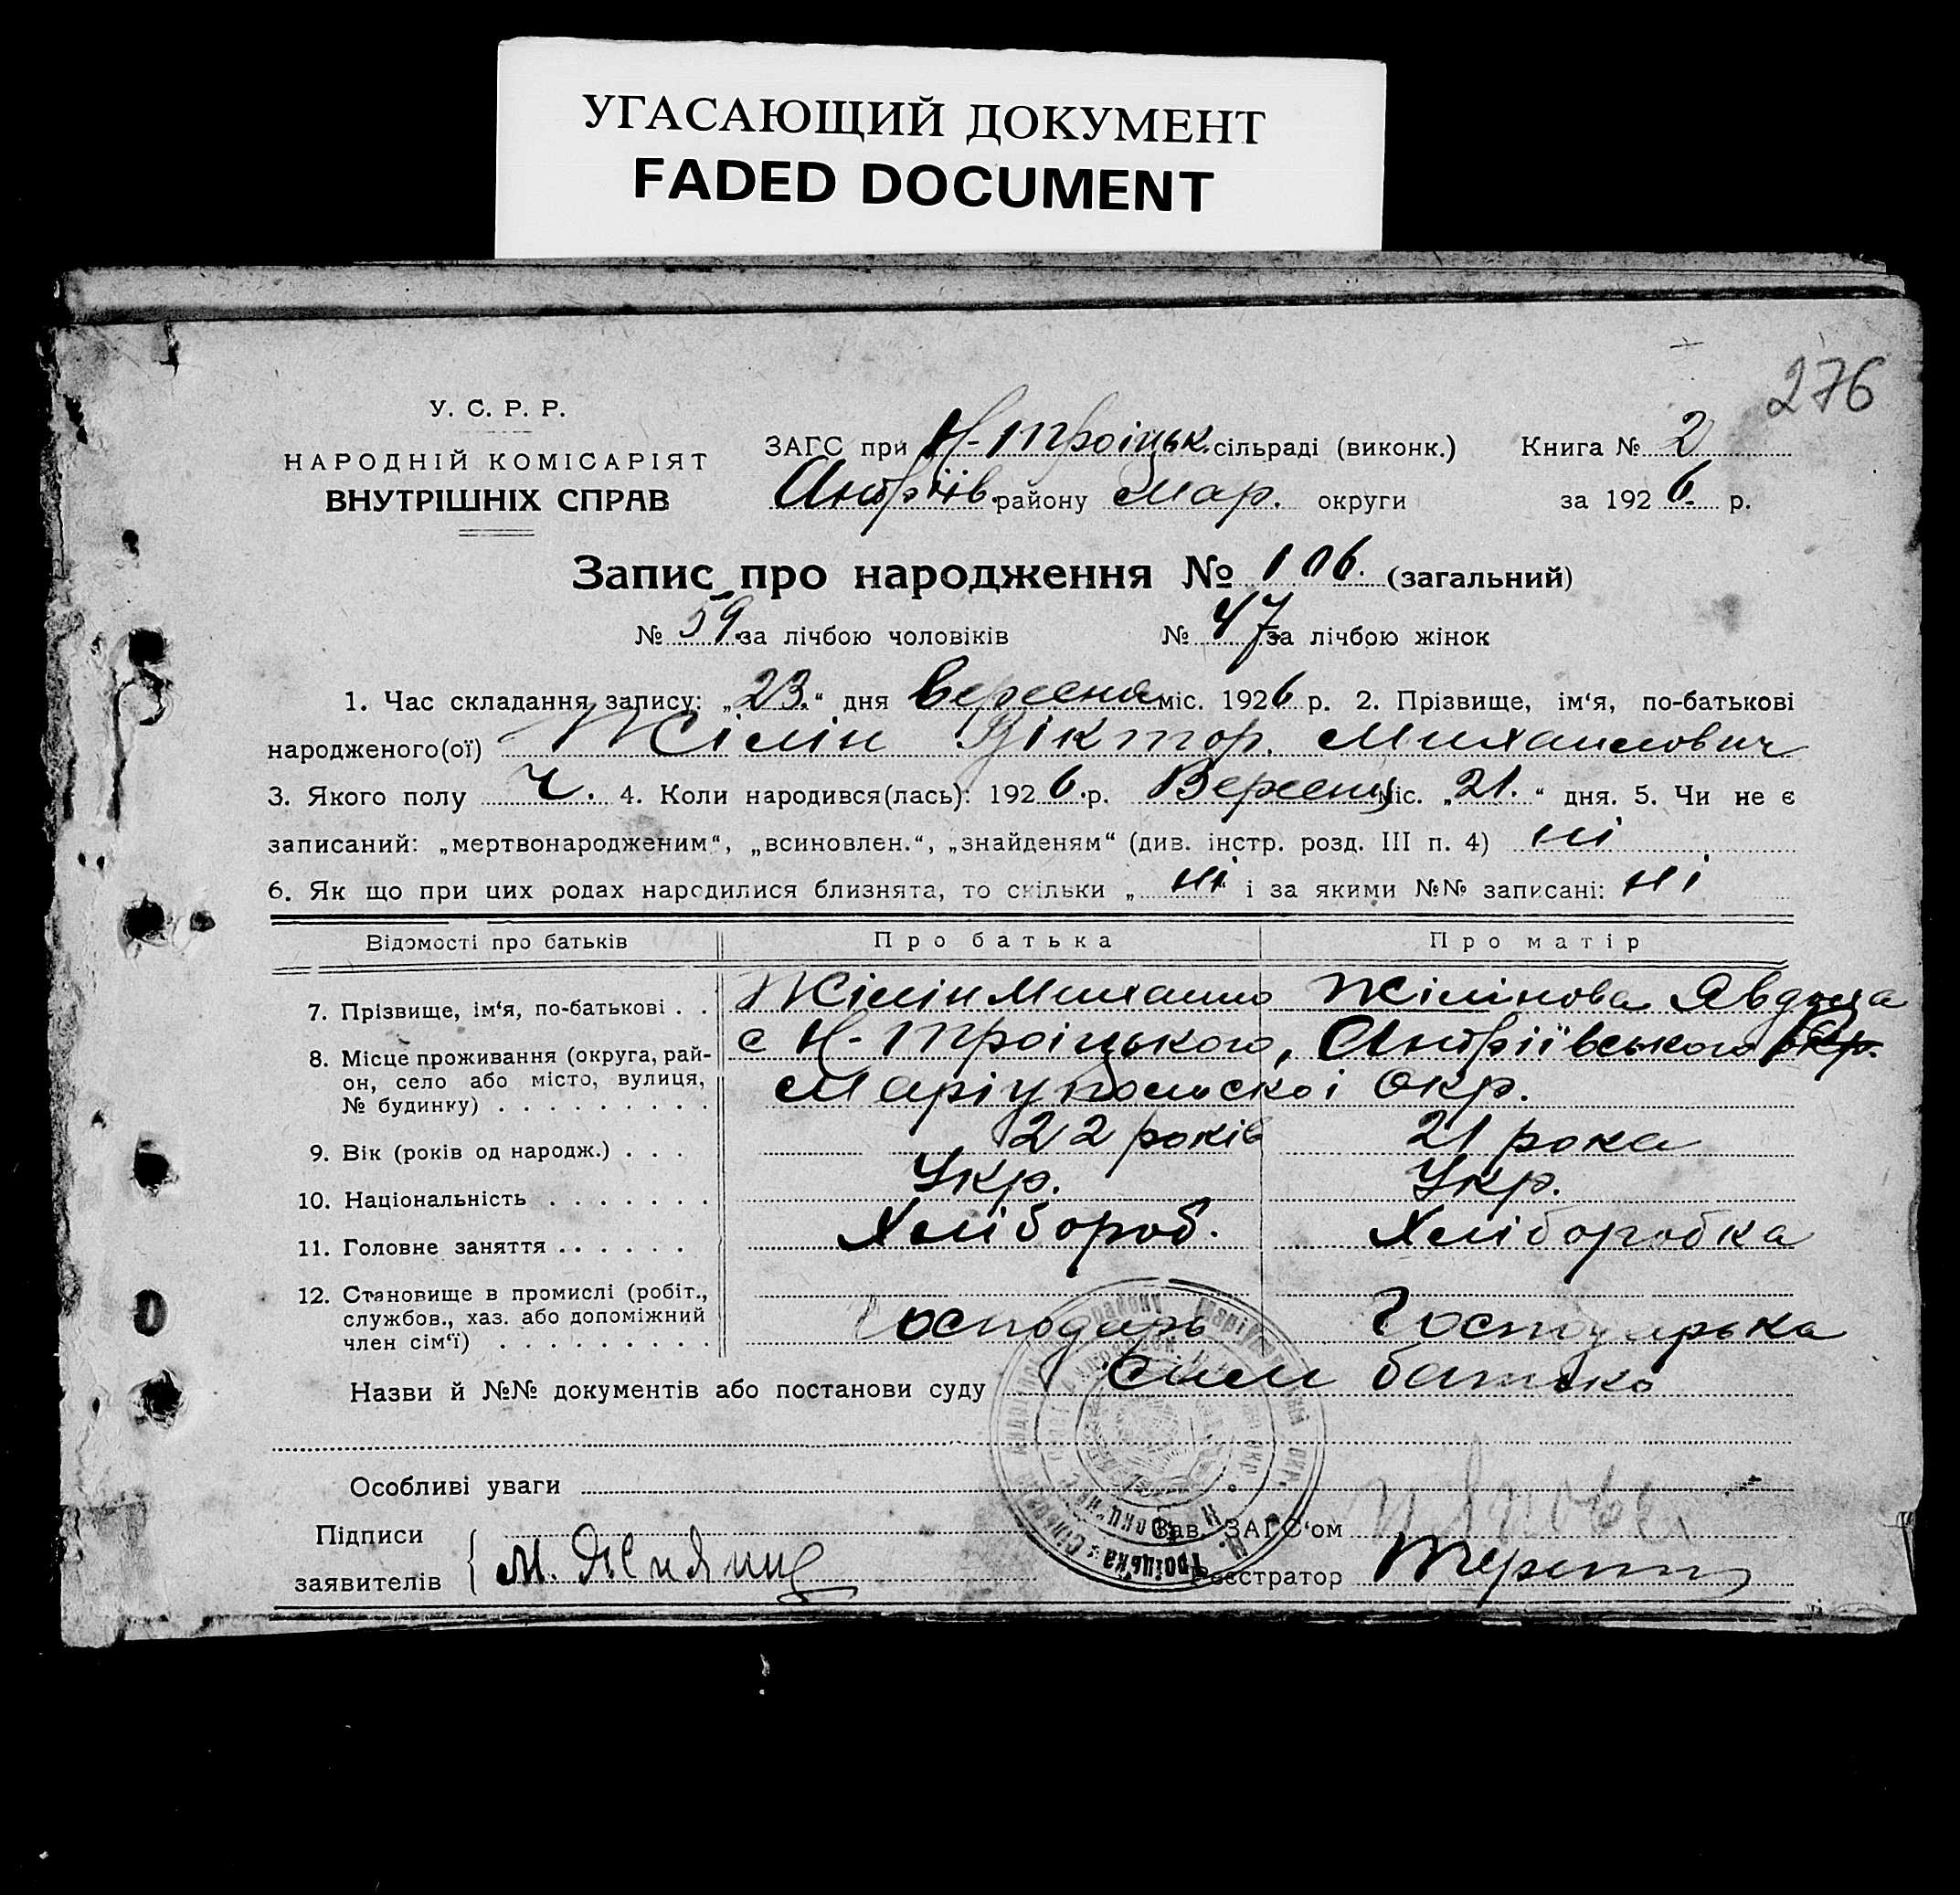 УГАСАЮЩИЙ ДОКУМЕНТ
FADED DOCUMENT
276
У. С. Р. Р.
НАРОДНІЙ КОМІСАРІЯТ
ВНУТРІШНІХ СПРАВ
ЗАГС при Н-Троіцьк. сільраді (виконк.) Книга № 2
Андріїв. району Мар. округи за 1926 р.
Запис про народження № 106. (загальний)
№ 59. за лічбою чоловіків № 47 за лічбою жінок
1. Час складання запису: „23.“ дня вересня міс. 1926 р. 2. Прізвище, ім‘я, по-батькові
народженого(ої) Жілін Віктор. Михайлович
3. Якого полу ч. 4. Коли народився(лась): 1926.р. Вересня міс. „21.“ дня. 5. Чи не є
записаний: „мертвонародженим“, „всиновлен.“, „знайденям“ (див. інстр. розд. III п. 4) ні
6. Як що при цих родах народилися близнята, то скільки „ ні і за якими №№ записані: ні
Відомості про батьків Про батька Про матір
7. Прізвище, ім‘я, по-батькові . . Жілін Михайло Жілінова Явдоха
8. Місце проживання (округа, рай- с Н-Троіцького, Андріївського окр.
он, село або місто, вулиця, Маріупольскоі Окр.
№ будинку) . . . . . . . . .
9. Вік (років од народж.) . . . 22 років 21 рока
10. Національність . . . . . . . Укр. Укр.
11. Головне заняття . . . . . . Хлібороб. Хлібробка
12. Становище в промислі (робіт.,
службов., хаз. або допоміжний Господарь Господарька
член сім‘ї) . . . . . . . . .
Назви й №№ документів або постанови суду батько
Особливі уваги
Підписи Зав. ЗАГС‘ом
заявителів М. Реєстратор